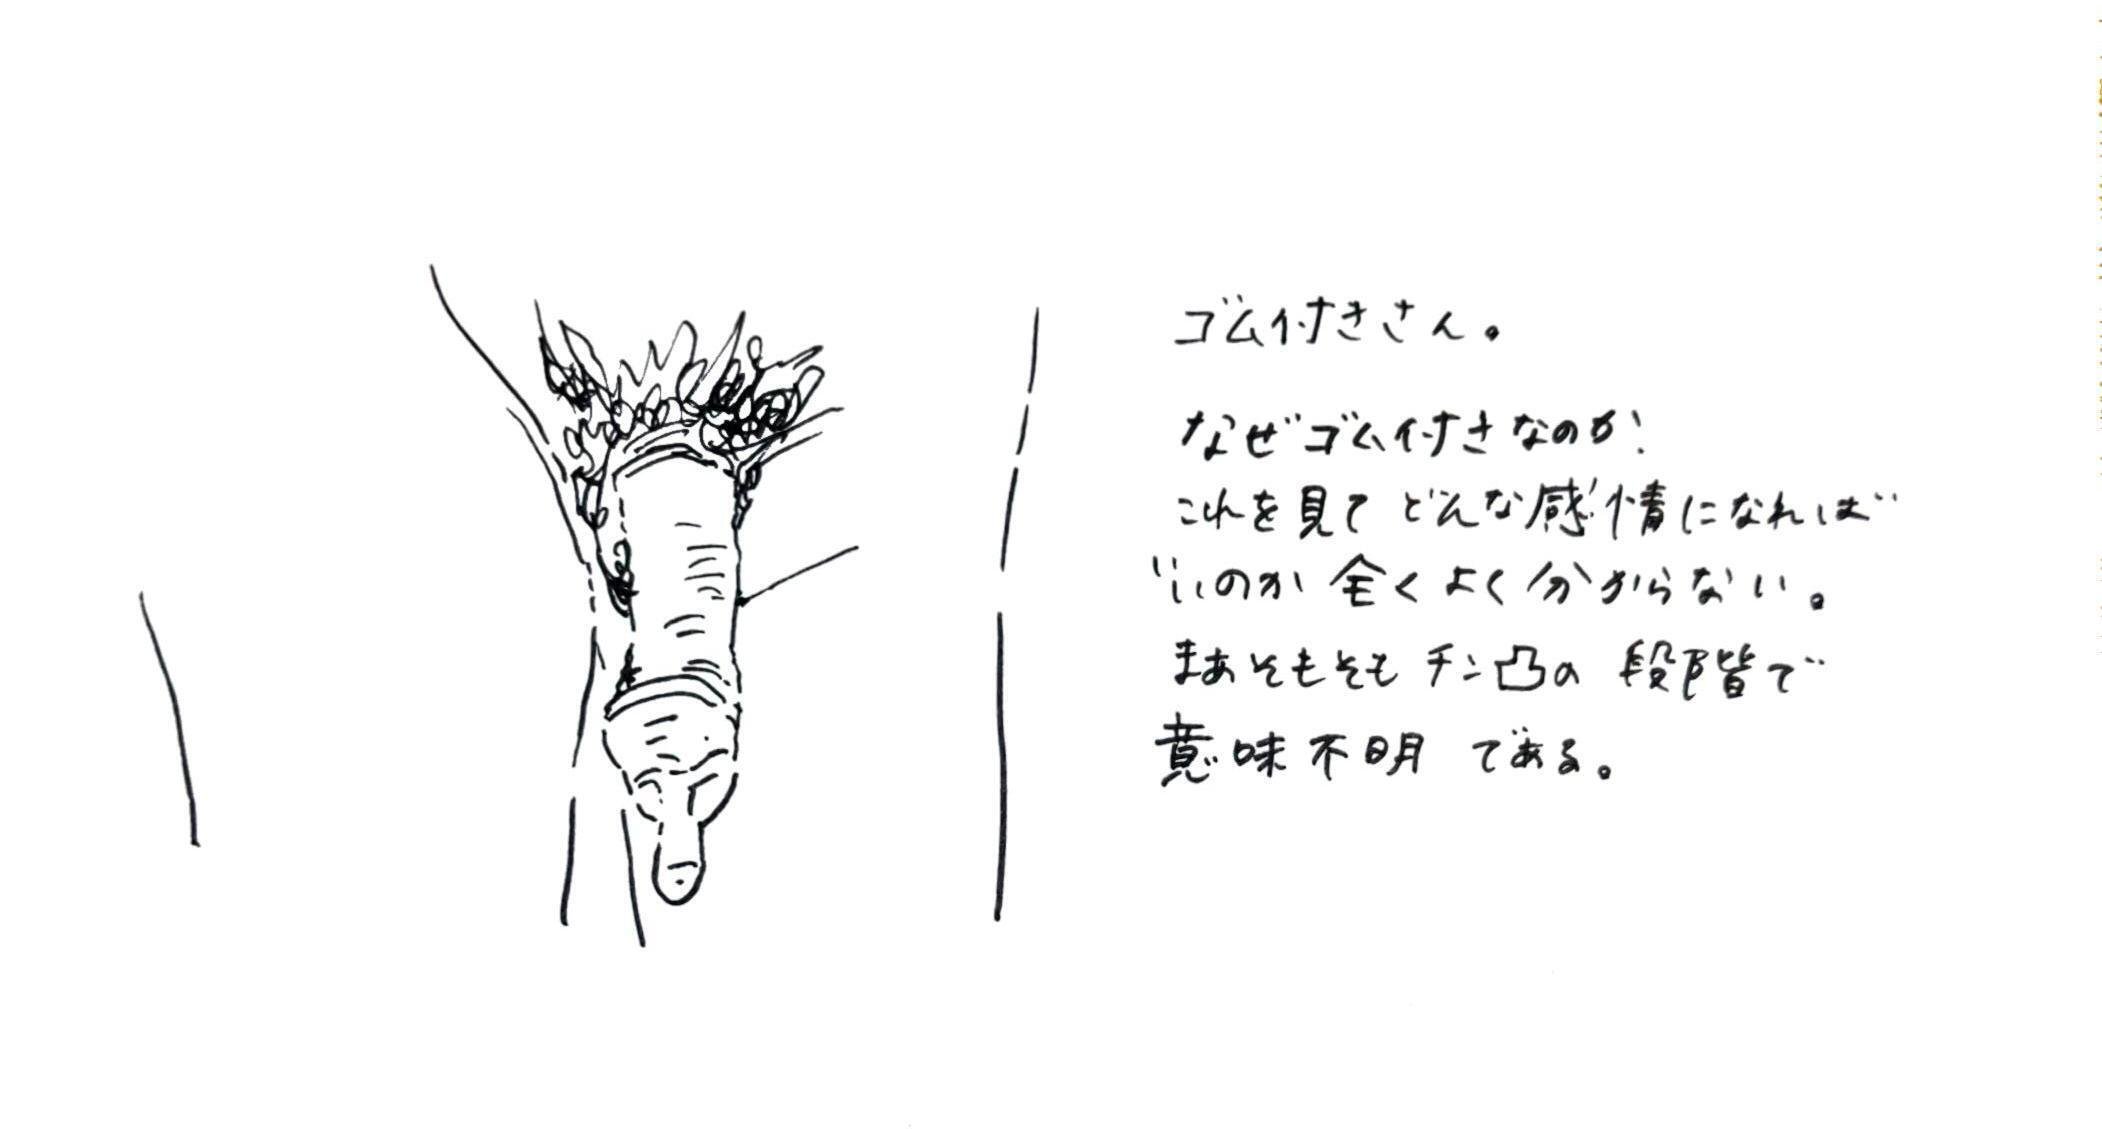 ゴム付きさん。
なぜゴム付きなのか!
これを見てどんな感情になれば
いいのか全くよく分からない。
まあそもそもチン凸の段階で
意味不明である。